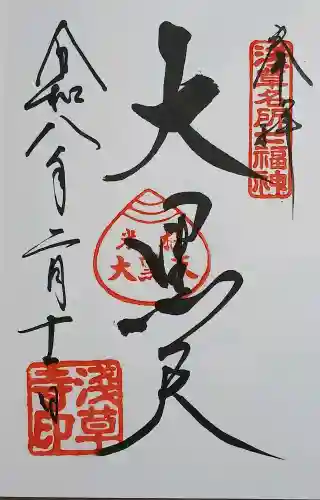 奉拝
浅草名所七福神
大黒天
米櫃
大黒天
令和八年二月十一日
浅草
寺印